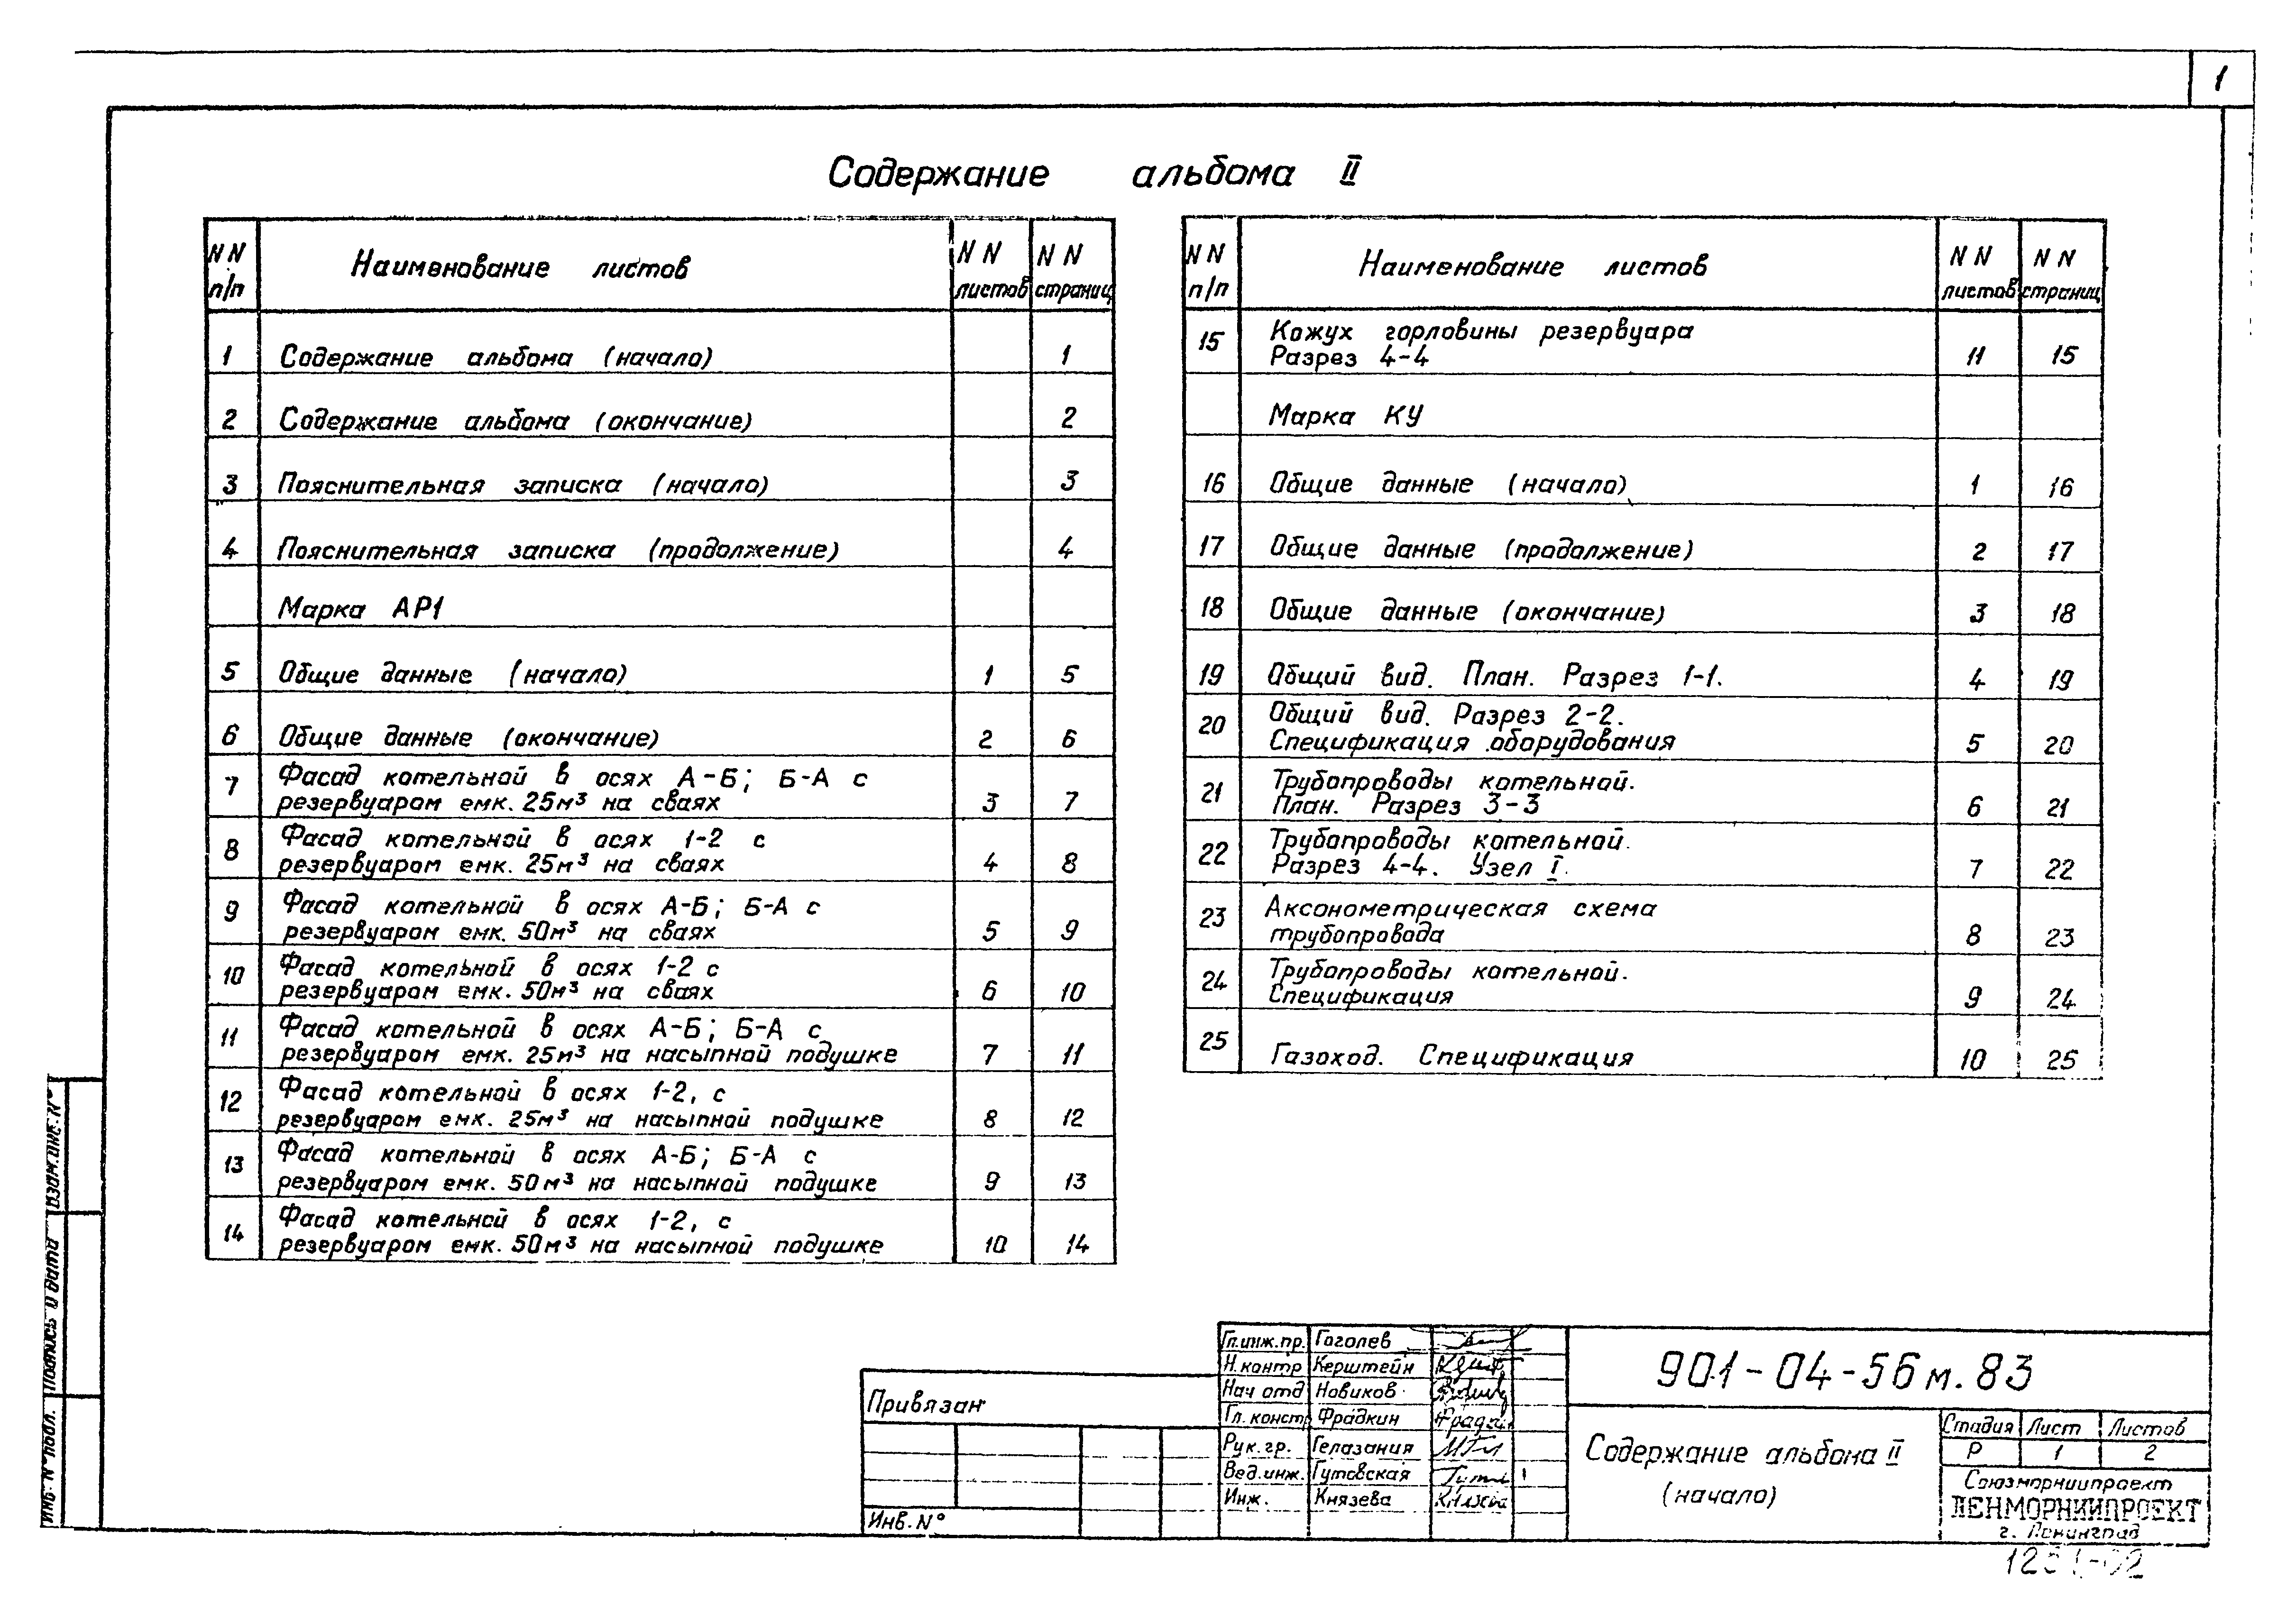 1
Содержание альбома II
NN п/п Наименование листов NN листов NN страниц
1 Содержание альбома (начало) 1
2 Содержание альбома (окончание) 2
3 Пояснительная записка (начало) 3
4 Пояснительная записка (продолжение) 4
Марка АР1
5 Общие данные (начало) 1 5
6 Общие данные (окончание) 2 6
7 Фасад котельной в осях А-Б; Б-А с
резервуаром емк. 25м³ на сваях 3 7
8 Фасад котельной в осях 1-2 с
резервуаром емк. 25м³ на сваях 4 8
9 Фасад котельной в осях А-Б; Б-А с
резервуаром емк. 50м³ на сваях 5 9
10 Фасад котельной в осях 1-2 с
резервуаром емк. 50м³ на сваях 6 10
11 Фасад котельной в осях А-Б; Б-А с
резервуаром емк. 25м³ на насыпной подушке 7 11
12 Фасад котельной в осях 1-2, с
резервуаром емк. 25м³ на насыпной подушке 8 12
13 Фасад котельной в осях А-Б; Б-А с
резервуаром емк. 50м³ на насыпной подушке 9 13
14 Фасад котельной в осях 1-2, с
резервуаром емк. 50м³ на насыпной подушке 10 14
NN п/п Наименование листов NN листов NN страниц
15 Кожух горловины резервуара
Разрез 4-4 11 15
Марка КУ
16 Общие данные (начало) 1 16
17 Общие данные (продолжение) 2 17
18 Общие данные (окончание) 3 18
19 Общий вид. План. Разрез 1-1. 4 19
20 Общий вид. Разрез 2-2.
Спецификация оборудования 5 20
21 Трубопроводы котельной.
План. Разрез 3-3 6 21
22 Трубопроводы котельной.
Разрез 4-4. Узел I. 7 22
23 Аксонометрическая схема
трубопровода 8 23
24 Трубопроводы котельной.
Спецификация 9 24
25 Газоход. Спецификация 10 25
Взам.инв.N°
Подпись и дата
Инв. N° подл.
Привязан
Инв. N°
Гл.инж.пр. Гоголев
Н.контр Керштейн
Нач отд Новиков
Гл. констр Фрадкин
Рук.гр. Гелазания
Вед.инж. Гутовская
Инж. Князева
901-04-56м.83
Содержание альбома II
(начало)
Стадия Лист Листов
Р 1 2
Союзморниипроект
ЛЕНМОРНИИПРОЕКТ
г. Ленинград